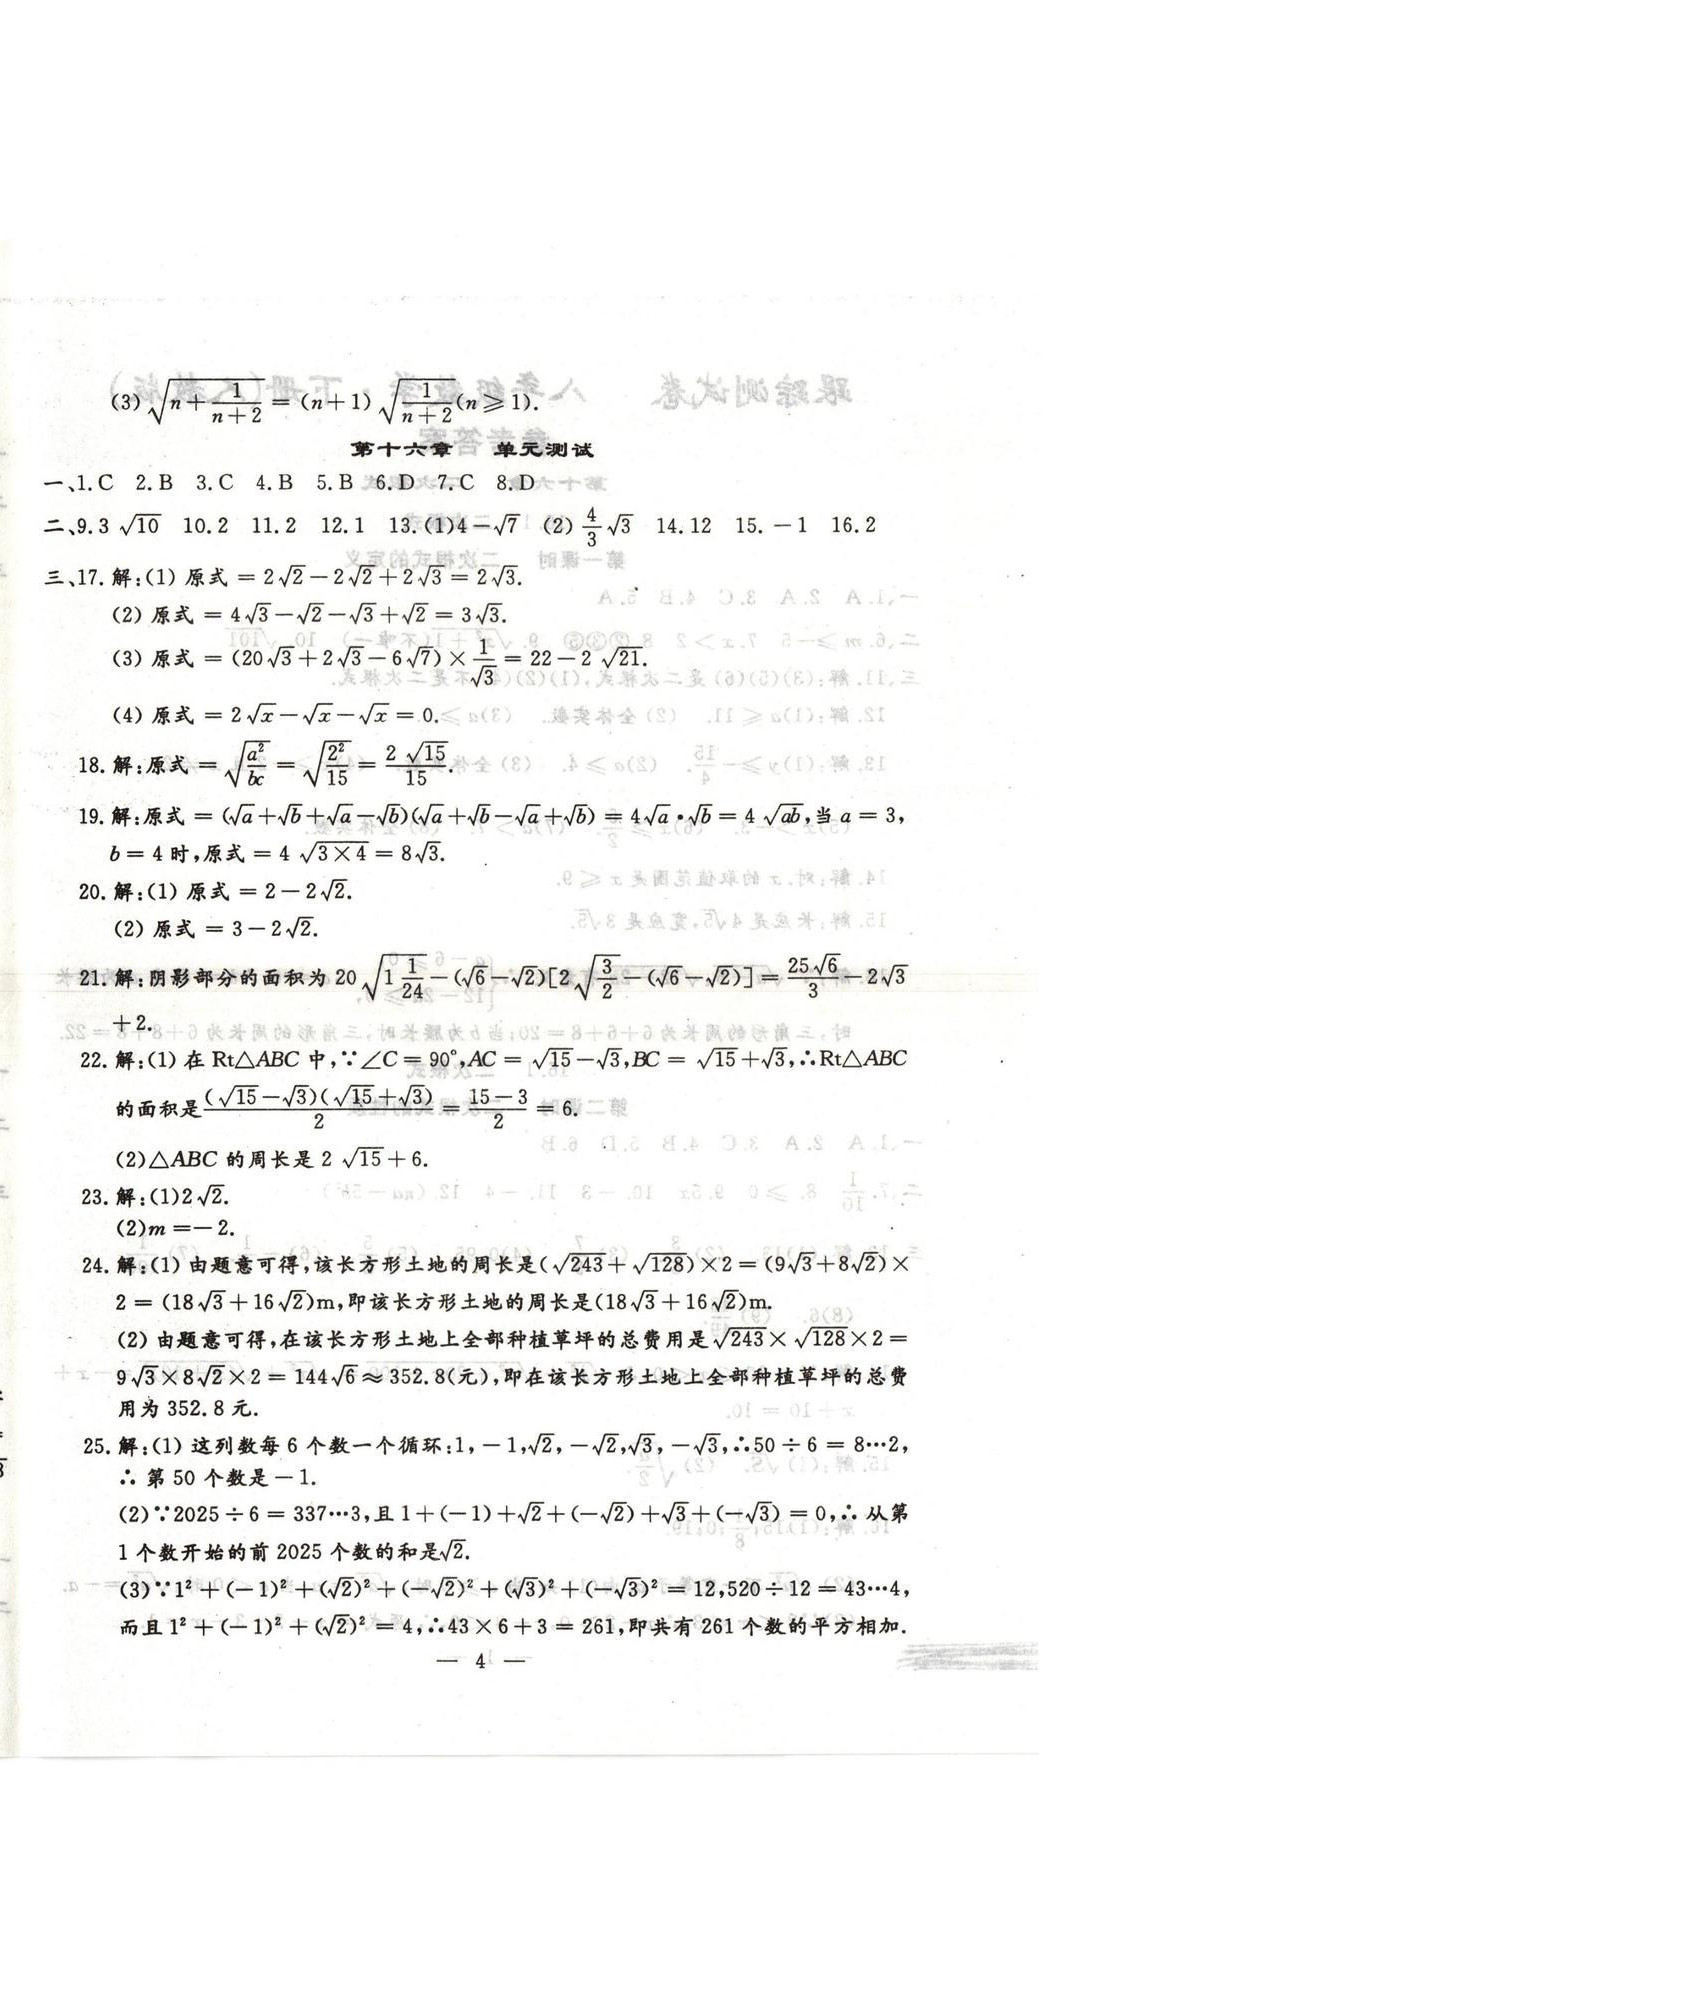 (3) √(n+1/(n+2)) = (n+1) √(1/(n+2)) (n⩾1).
第十六章　单元测试
一、1.C　2.B　3.C　4.B　5.B　6.D　7.C　8.D
二、9.3√10　10.2　11.2　12.1　13.(1)4−√7　(2)4/3√3　14.12　15.−1　16.2
三、17.解:(1)原式=2√2−2√2+2√3=2√3.
(2)原式=4√3−√2−√3+√2=3√3.
(3)原式=(20√3+2√3−6√7)×1/√3=22−2√21.
(4)原式=2√x−√x−√x=0.
18.解:原式=√(a²/bc)=√(2²/15)=2√15/15.
19.解:原式=(√a+√b+√a−√b)(√a+√b−√a+√b)=4√a•√b=4√ab,当a=3,
b=4时,原式=4√(3×4)=8√3.
20.解:(1)原式=2−2√2.
(2)原式=3−2√2.
21.解:阴影部分的面积为20√(1 1/24)−(√6−√2)[2√(3/2)−(√6−√2)]=25√6/3−2√3
+2.
22.解:(1)在Rt△ABC中,∵∠C=90°,AC=√15−√3,BC=√15+√3,∴Rt△ABC
的面积是(√15−√3)(√15+√3)/2=(15−3)/2=6.
(2)△ABC的周长是2√15+6.
23.解:(1)2√2.
(2)m=−2.
24.解:(1)由题意可得,该长方形土地的周长是(√243+√128)×2=(9√3+8√2)×
2=(18√3+16√2)m,即该长方形土地的周长是(18√3+16√2)m.
(2)由题意可得,在该长方形土地上全部种植草坪的总费用是√243×√128×2=
9√3×8√2×2=144√6≈352.8(元),即在该长方形土地上全部种植草坪的总费
用为352.8元.
25.解:(1)这列数每6个数一个循环:1,−1,√2,−√2,√3,−√3,∴50÷6=8…2,
∴第50个数是−1.
(2)∵2025÷6=337…3,且1+(−1)+√2+(−√2)+√3+(−√3)=0,∴从第
1个数开始的前2025个数的和是√2.
(3)∵1²+(−1)²+(√2)²+(−√2)²+(√3)²+(−√3)²=12,520÷12=43…4,
而且1²+(−1)²+(√2)²=4,∴43×6+3=261,即共有261个数的平方相加.
— 4 —